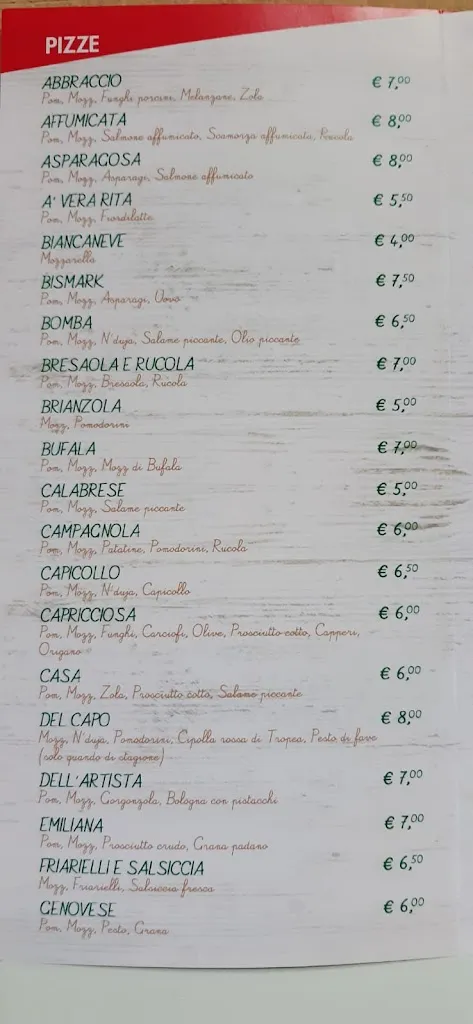 PIZZE
ABBRACCIO € 7,00
Pom, Mozz, Funghi porcini, Melanzane, Zola
AFFUMICATA € 8,00
Pom, Mozz, Salmone affumicato, Scamorza affumicata, Rucola
ASPARAGOSA € 8,00
Pom, Mozz, Asparagi, Salmone affumicato
A' VERA RITA € 5,50
Pom, Mozz, Fiordilatte
BIANCANEVE € 4,00
Mozzarella
BISMARK € 7,50
Pom, Mozz, Asparagi, Uovo
BOMBA € 6,50
Pom, Mozz, N'duja, Salame piccante, Olio piccante
BRESAOLA E RUCOLA € 7,00
Pom, Mozz, Bresaola, Rucola
BRIANZOLA € 5,00
Mozz, Pomodorini
BUFALA € 7,00
Pom, Mozz, Mozz di Bufala
CALABRESE € 5,00
Pom, Mozz, Salame piccante
CAMPAGNOLA € 6,00
Pom, Mozz, Patatine, Pomodorini, Rucola
CAPICOLLO € 6,50
Pom, Mozz, N'duja, Capicollo
CAPRICCIOSA € 6,00
Pom, Mozz, Funghi, Carciofi, Olive, Prosciutto cotto, Capperi,
Origano
CASA € 6,00
Pom, Mozz, Zola, Prosciutto cotto, Salame piccante
DEL CAPO € 8,00
Mozz, N'duja, Pomodorini, Cipolla rossa di Tropea, Pesto di fave
(solo quando di stagione)
DELL'ARTISTA € 7,00
Pom, Mozz, Gorgonzola, Bologna con pistacchi
EMILIANA € 7,00
Pom, Mozz, Prosciutto crudo, Grana padano
FRIARIELLI E SALSICCIA € 6,50
Mozz, Friarielli, Salsiccia fresca
GENOVESE € 6,00
Pom, Mozz, Pesto, Grana